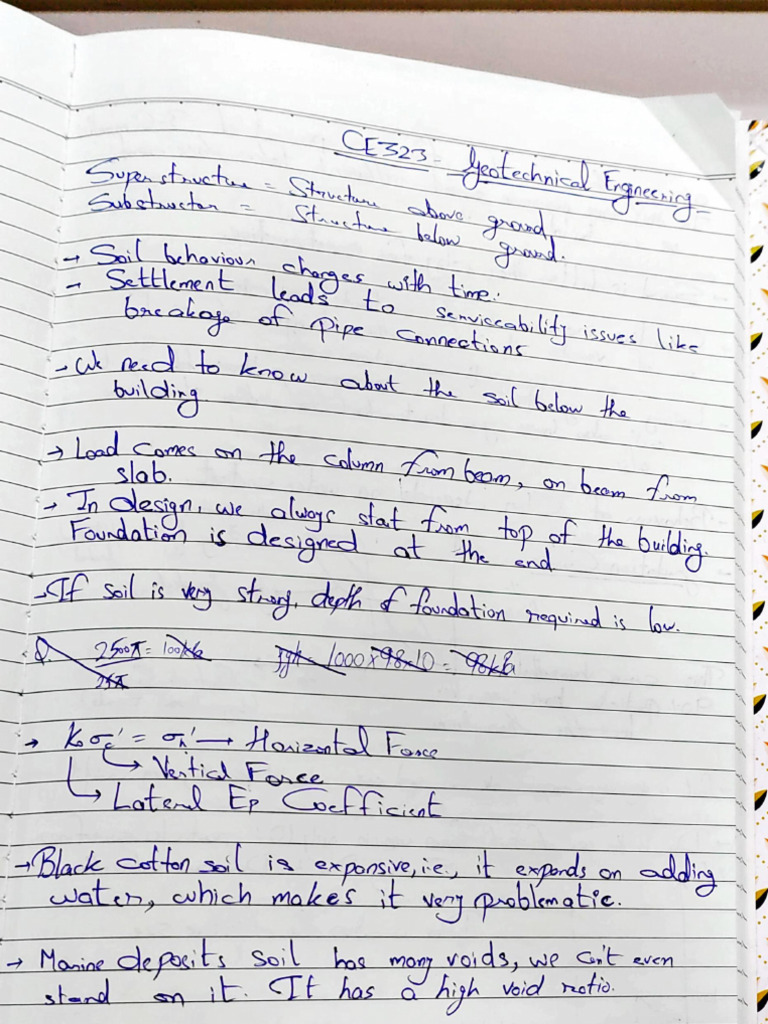 CE323 - Geotechnical Engineering
Superstructure = Structure above ground
Substructure = Structure below ground.
→ Soil behaviour changes with time.
→ Settlement leads to serviceability issues like
breakage of pipe connections
→ We need to know about the soil below the
building
→ Load comes on the column from beam, on beam from
slab.
→ In design, we always start from top of the building.
Foundation is designed at the end
→ If soil is very strong, depth of foundation required is low.
Q. 2500π = 100kPa 1000×98×10 = 98kPa
25π
→ K₀σc' = σh' → Horizontal Force
↳ Vertical Force
↳ Lateral Ep Coefficient
→ Black cotton soil is expansive, i.e., it expands on adding
water, which makes it very problematic.
→ Marine deposits soil has many voids, we can't even
stand on it. It has a high void ratio.